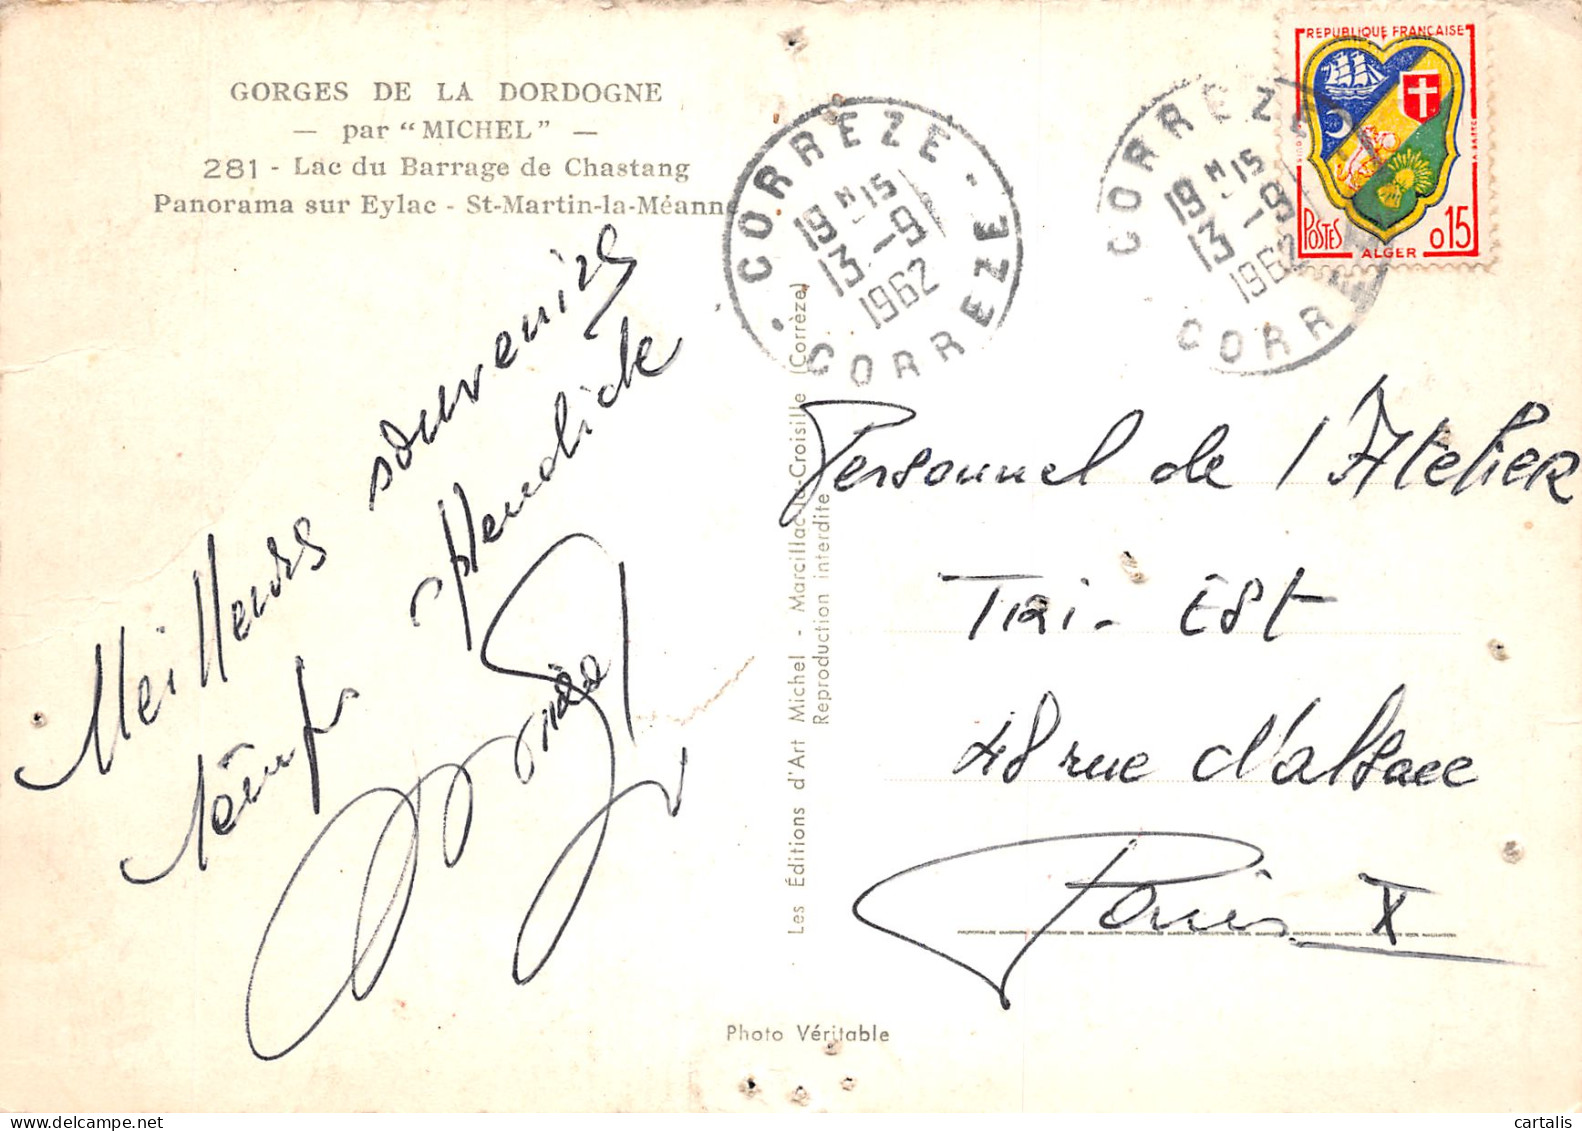 GORGES DE LA DORDOGNE
— par "MICHEL" —
281 - Lac du Barrage de Chastang
Panorama sur Eylac - St-Martin-la-Méanne
Meilleurs souvenirs
temps splendide
CORREZE
19 H 15
13 - 9
1962
CORREZE
CORREZE
19 H 15
13 - 9
1962
CORR
REPUBLIQUE FRANÇAISE
POSTES
ALGER
0,15
Personnel de l'Atelier
Tri - Est
48 rue d'alsace
Paris X
Les Éditions d'Art Michel - Marcillac-la-Croisille (Corrèze)
Reproduction interdite
Photo Véritable
cartalis